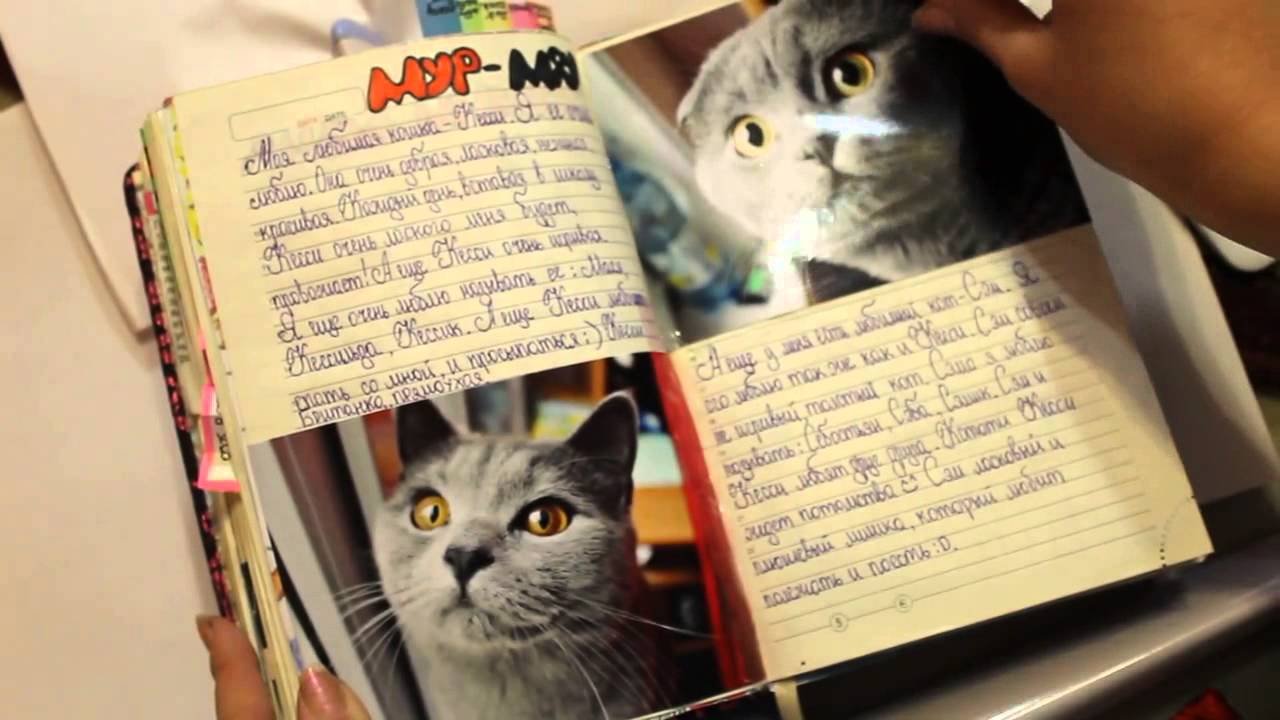 МУР-МЯУ
Моя любимая кошка-Кесси. Я её очень
люблю. Она очень добрая, ласковая, нежная
красивая. Каждый день, вставая в школу
Кесси очень лаского меня будет,
провожает! А ещё Кесси очень игривая
Я еще очень люблю называть её: Маля,
Кессильда, Кессик. А ещё Кесси любит
спать со мной, и просыпаться:) Кесси
Британка, прямоухая.
А ещё у меня есть любимый кот-Сэм. Я
его люблю так же как и Кесси. Сэм совсем
не игривый, толстый кот. Сэма я люблю
называть: Себастьян, Сэба, Сэмик. Сэм и
Кесси любят друг друга. Кстати Кесси
ждет потомства Сэм ласковый и
плюшевый мишка, который любит
полежать и поесть :D.
5 6